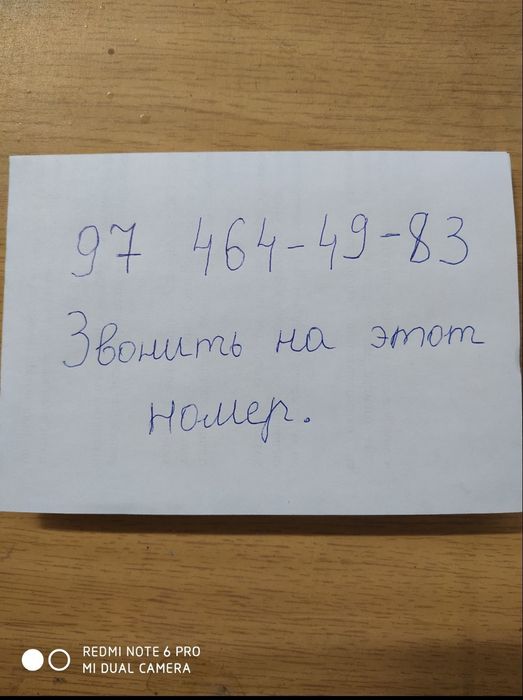 97 464-49-83
Звонить на этот
номер.
REDMI NOTE 6 PRO
MI DUAL CAMERA